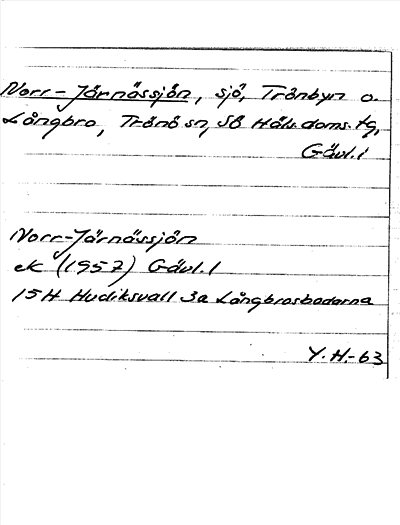 Norr-Järnässjön, sjö, Trönbyn o.
Långbro, Trönö sn, SÖ Häls. doms. tg,
Gävl. l
Norr-Järnässjön
ek (1957) Gävl. l
15H Hudiksvall 3a Långbrosbodarna
Y. H.-63